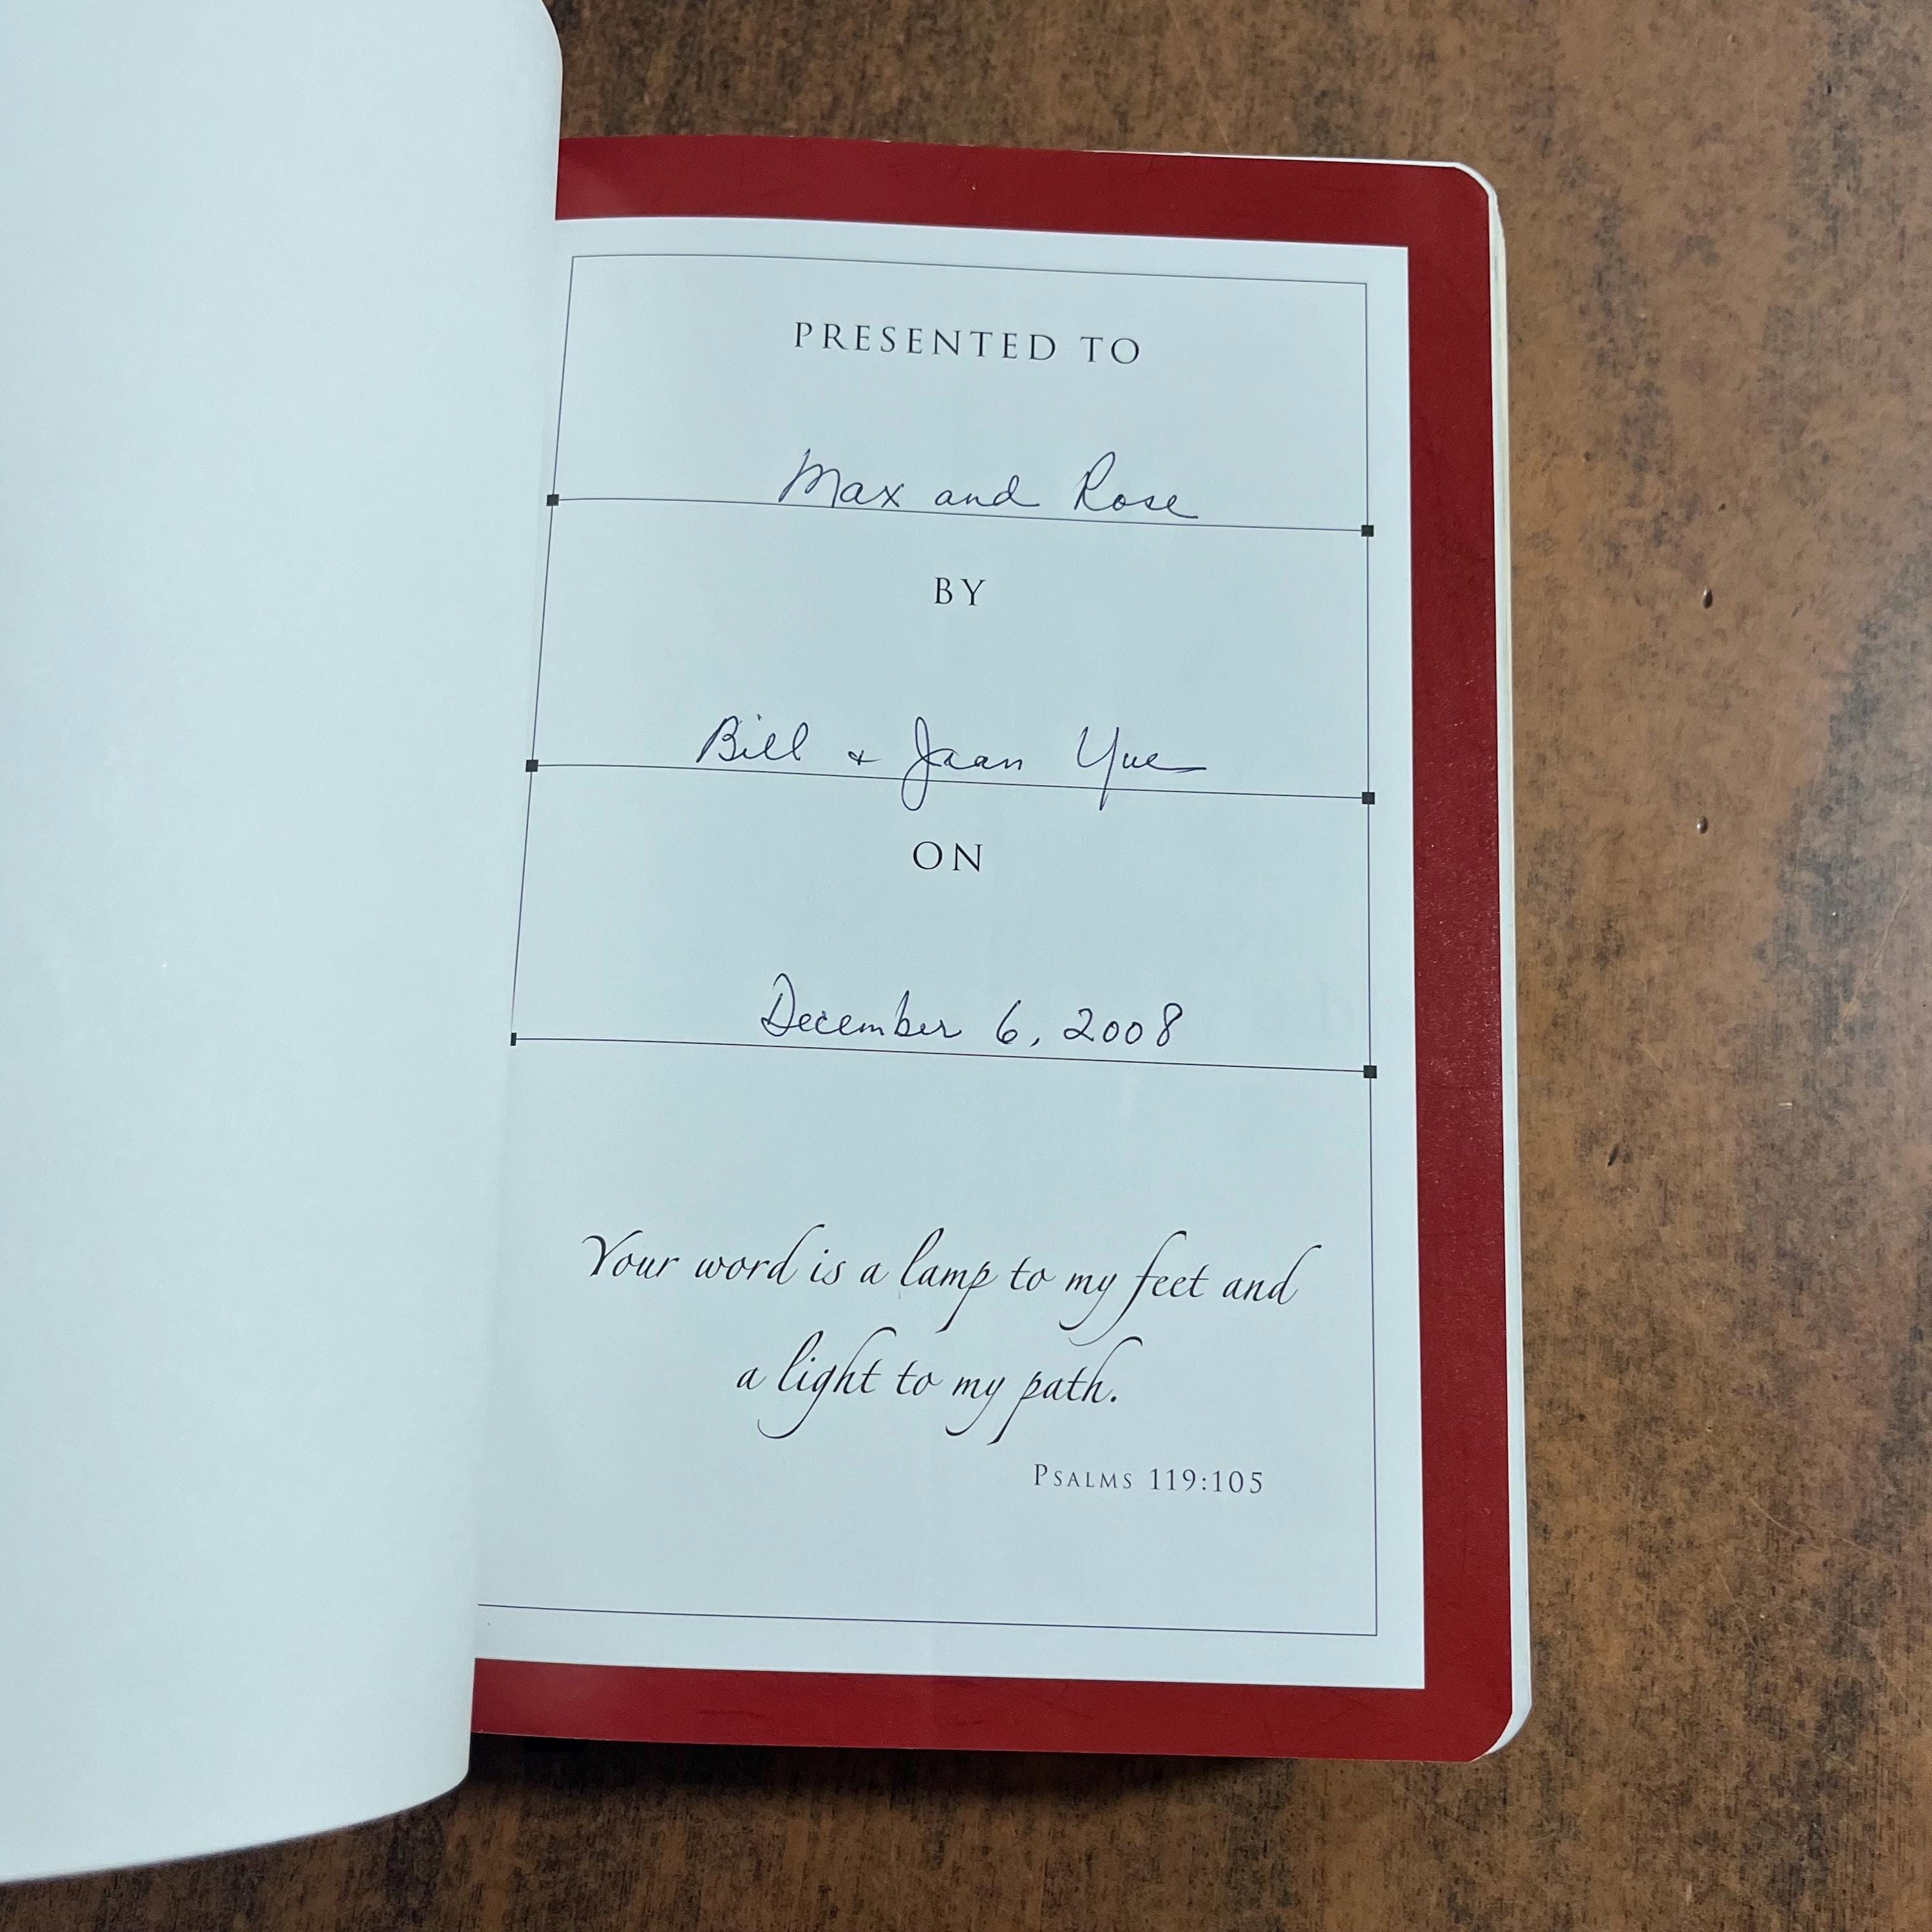 PRESENTED TO
Max and Rose
BY
Bill & Jaan Yue
ON
December 6, 2008
Your word is a lamp to my feet and
a light to my path.
PSALMS 119:105